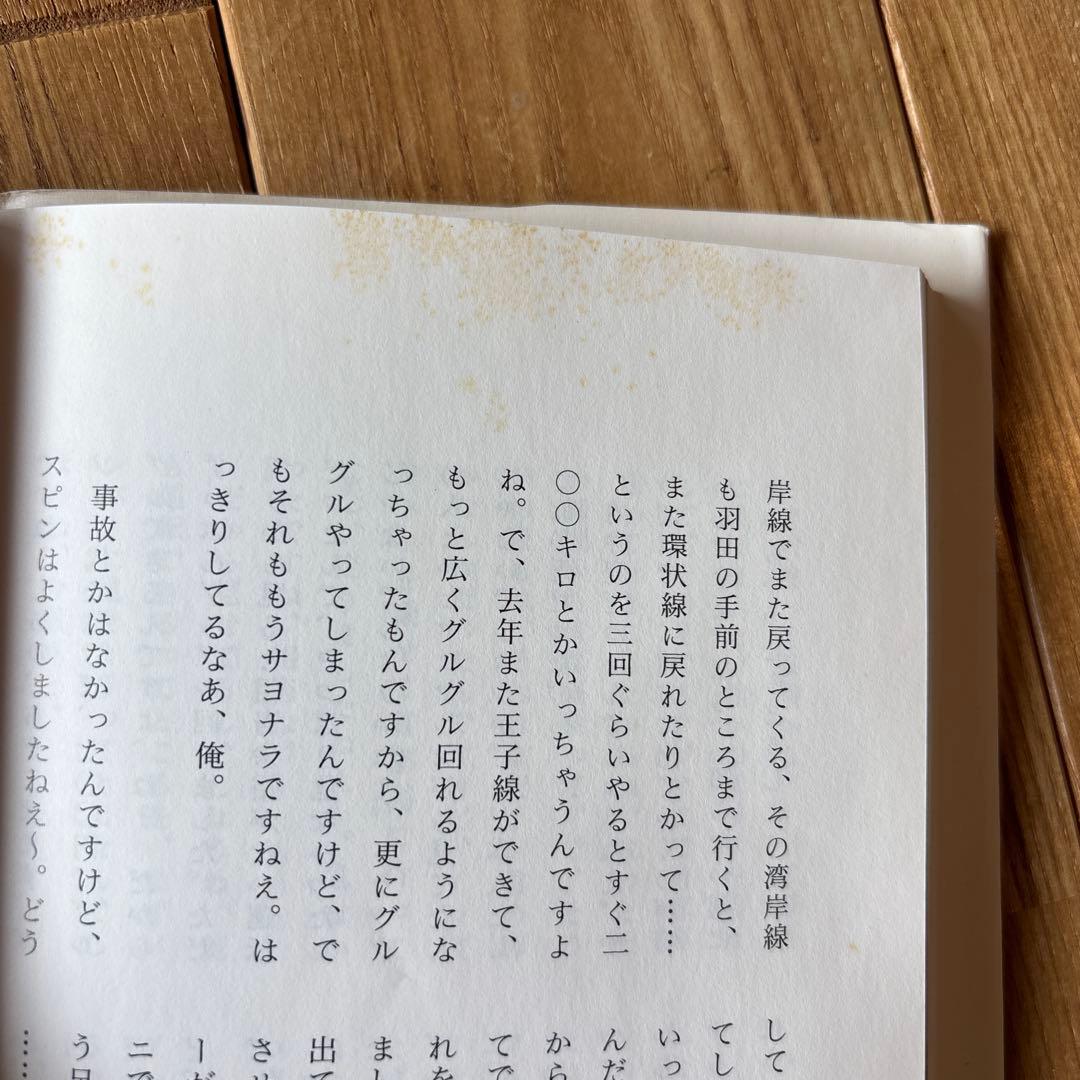 岸線でまた戻ってくる、その湾岸線
も羽田の手前のところまで行くと、
また環状線に戻れたりとかって……
というのを三回ぐらいやるとすぐ二
〇〇キロとかいっちゃうんですよ
ね。で、去年また王子線ができて、
もっと広くグルグル回れるようにな
っちゃったもんですから、更にグル
グルやってしまったんですけど、で
もそれももうサヨナラですねえ。は
っきりしてるなあ、俺。
事故とかはなかったんですけど、
スピンはよくしましたねえ〜。どう
して
てし
いっ
んだ
から
てで
れを
まし
出て
させ
ーが
ニで
う兄
……